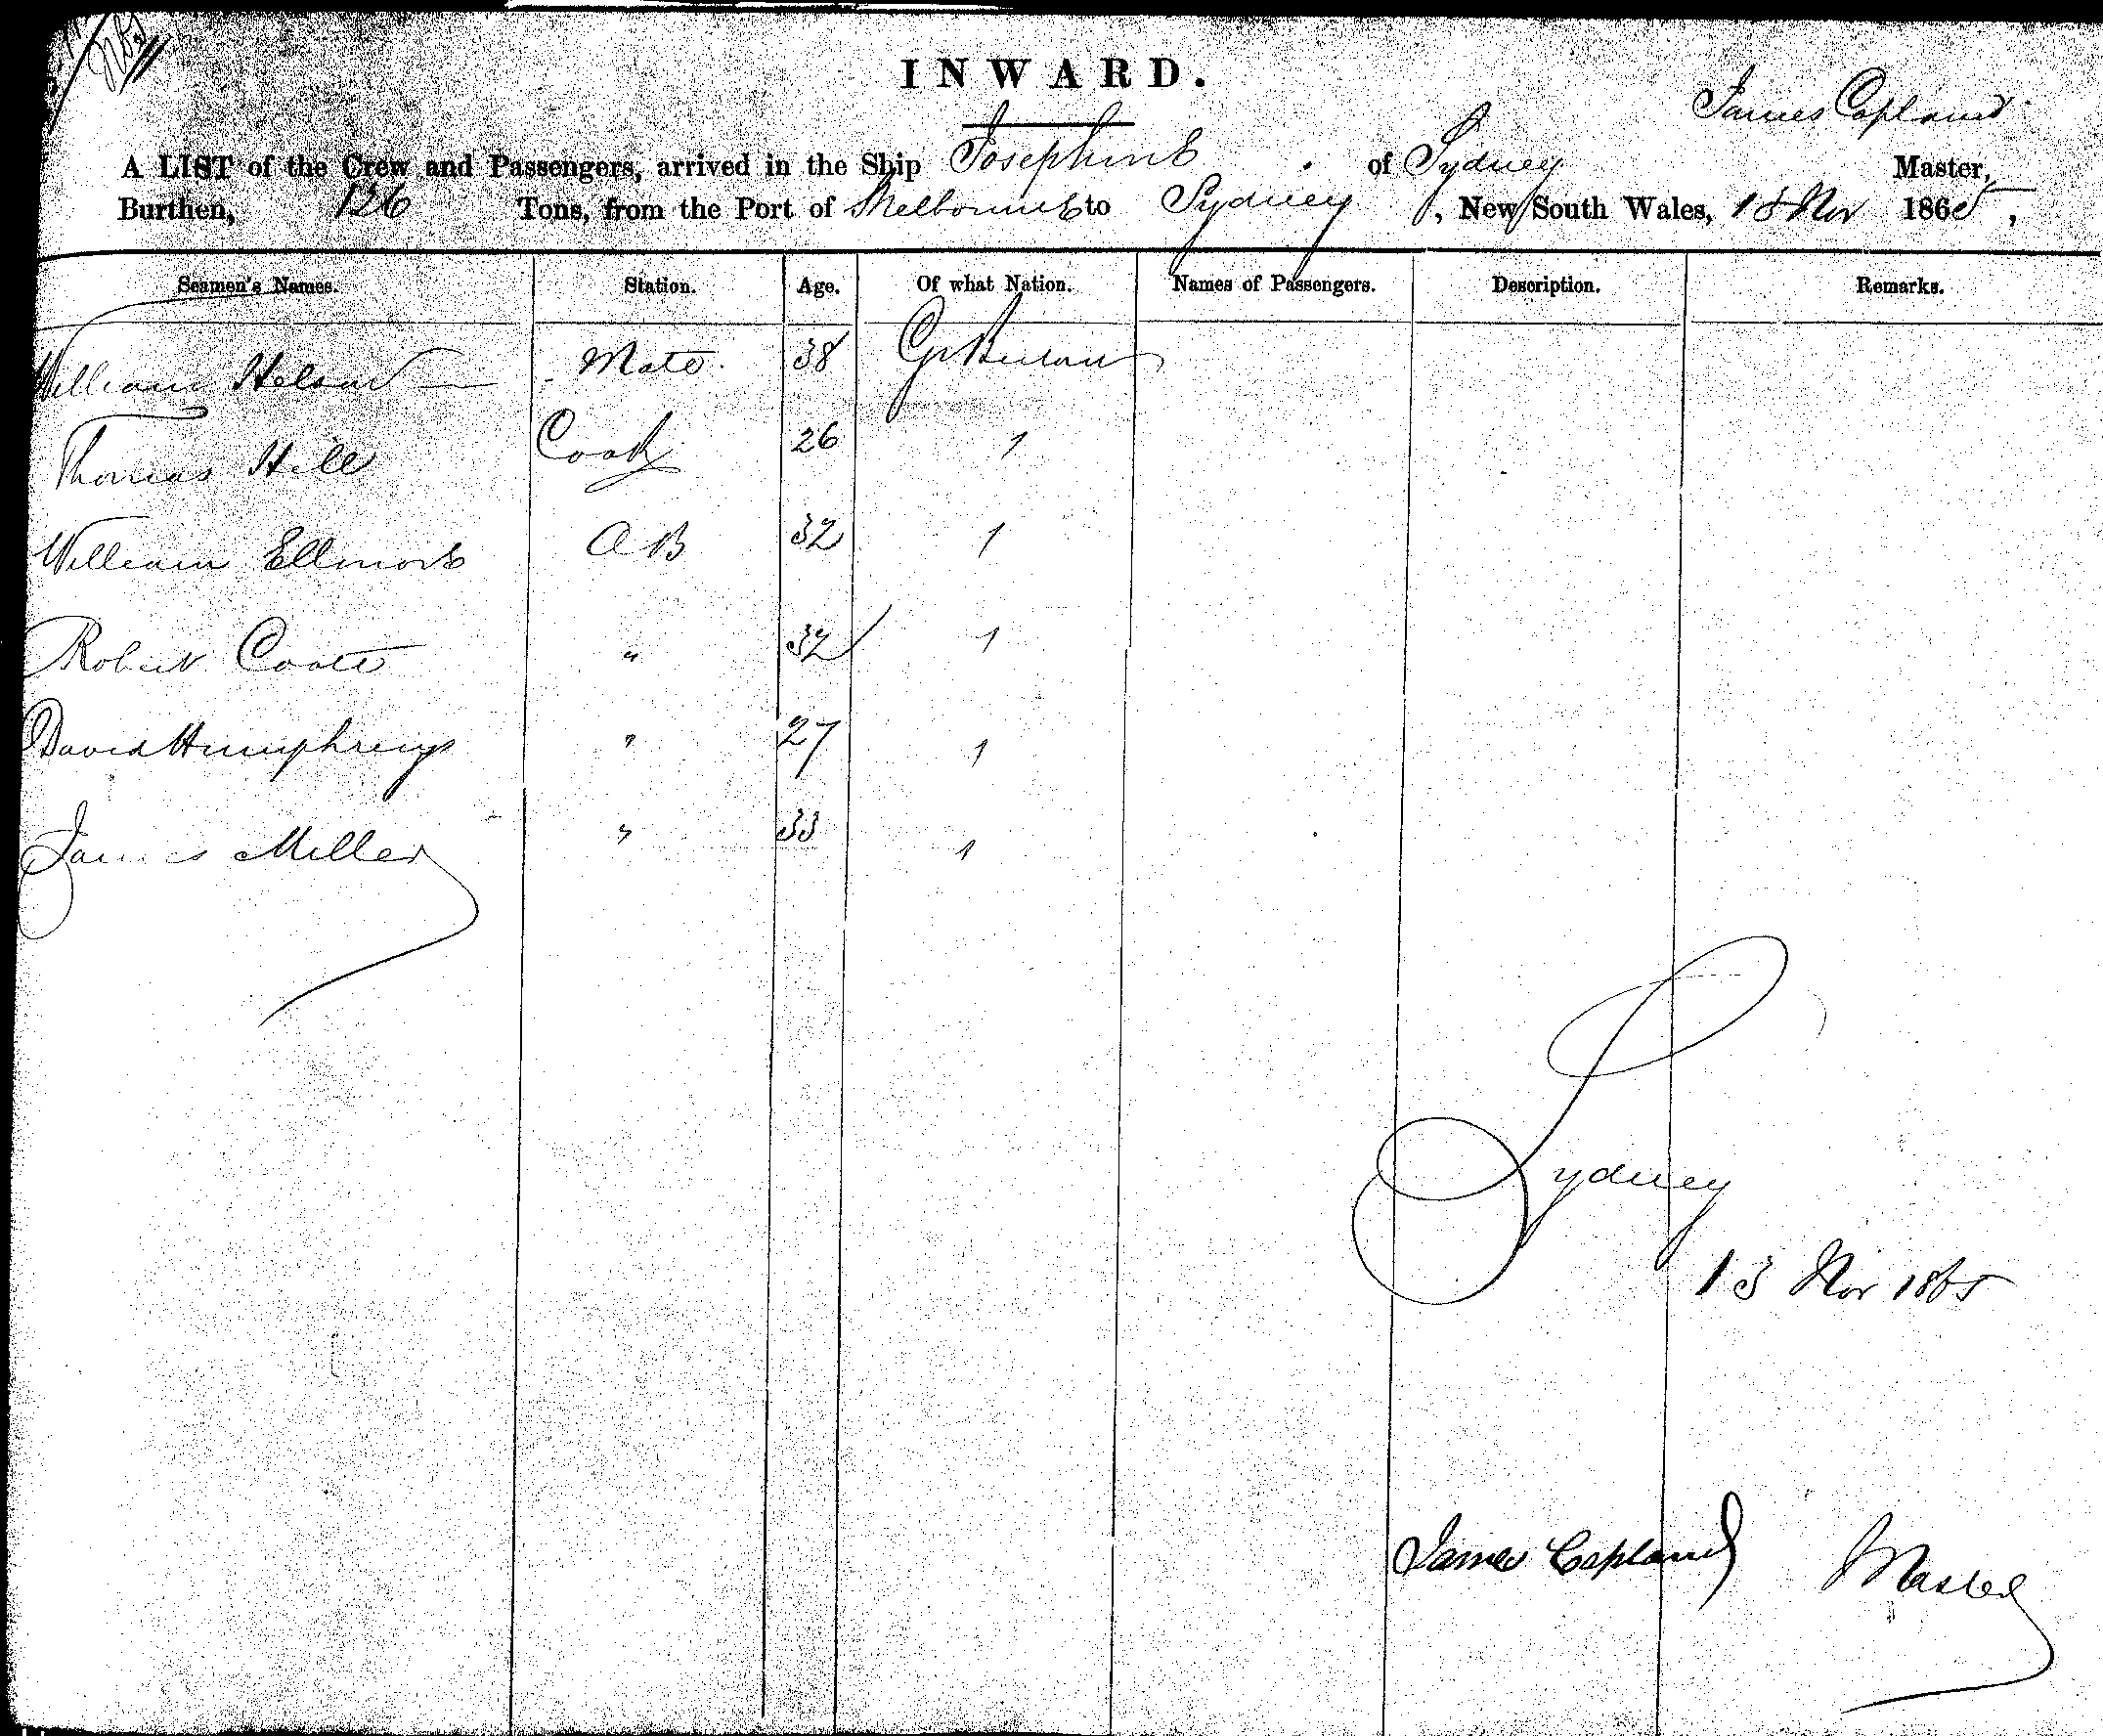 INWARD.
James Copland
A LIST of the Crew and Passengers, arrived in the Ship Josephine of Sydney Master,
Burthen, 126 Tons, from the Port of Melbourne to Sydney, New South Wales, 13 Nov 1865,
Seamen's Names. Station. Age. Of what Nation. Names of Passengers. Description. Remarks.
William Mate 38 Gt Britain
Thomas Hill Cook 26 1
William Ellmore A B 32 1
Robert Coate " 32 1
David Humphreys " 27 1
James Miller " 33 1
Sydney
13 Nov 1865
James Copland Master